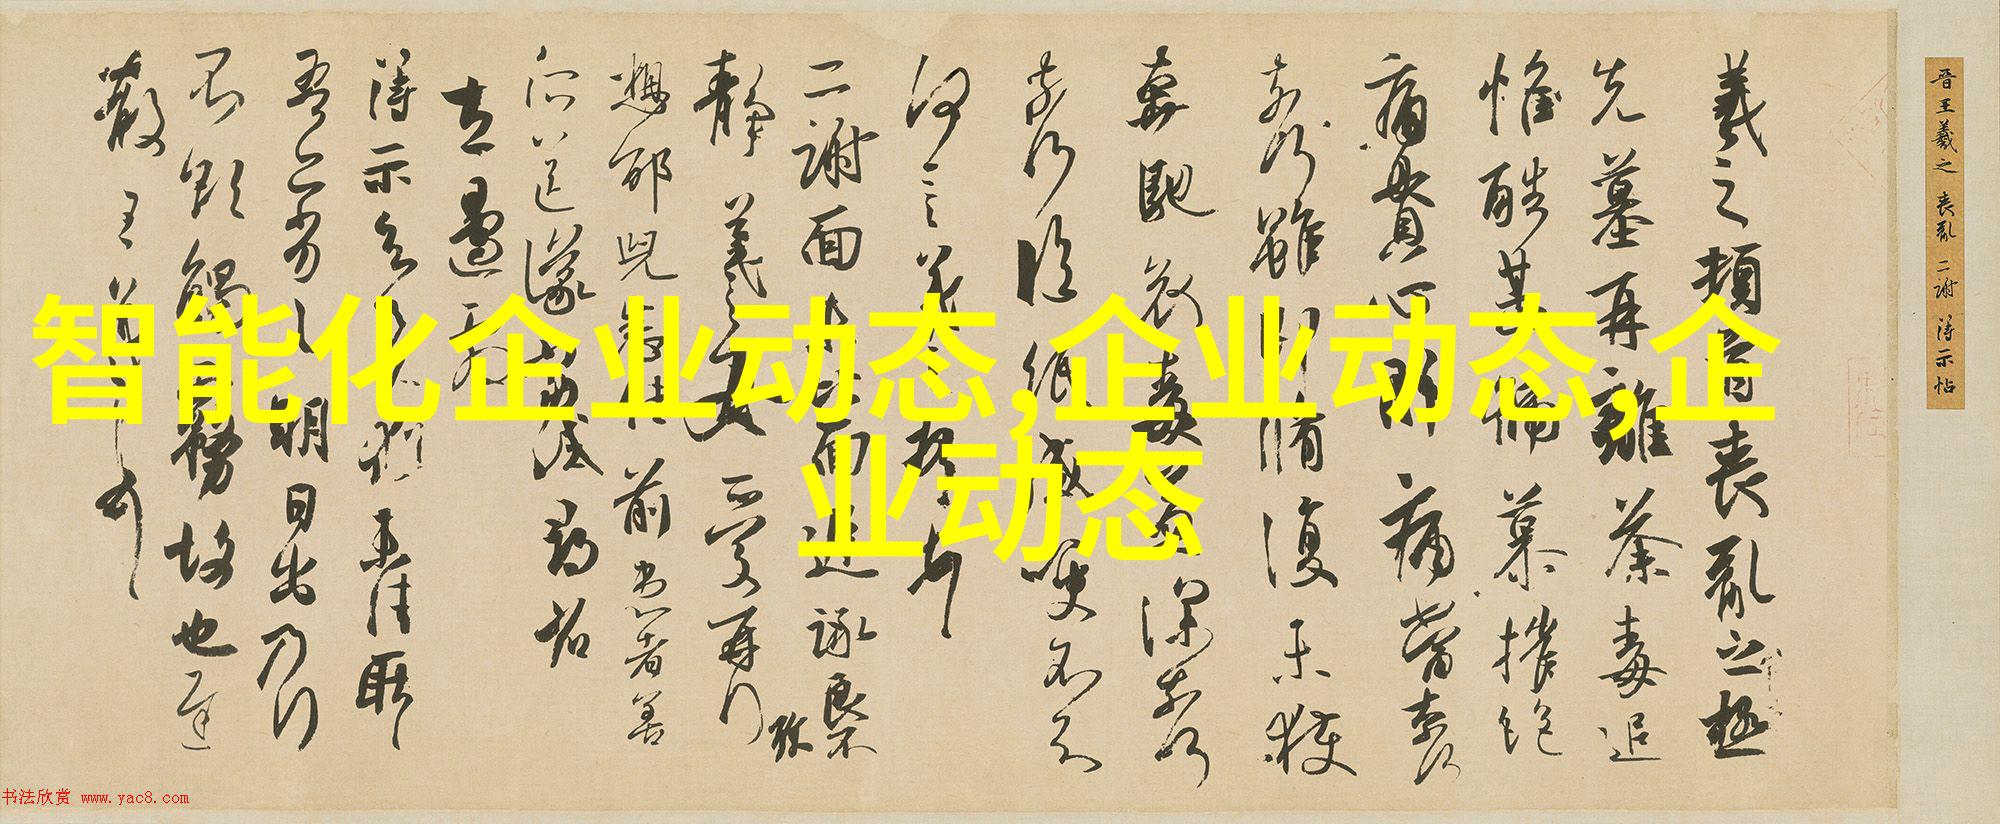 晋王羲之 喪亂 二謝 得示帖
羲之頓首喪亂之極
先墓再離荼毒追
惟酷甚號慕摧絕
痛貫心肝痛當奈何
奈何雖即脩復未獲
奔馳哀毒益深奈何
奈何臨紙感哽不知
何言羲之頓首頓首
二謝面未比面遲詠良不
靜羲之女愛再拜
想邵兒悉佳前患者善
左邊劇
得示知足下猶未佳耿耿
吾亦劣劣明日出乃行
不欲觸霧故也遲
散王羲之頓首
智能化企业动态,企业动态,企
业动态
书法欣赏 www.yac8.com